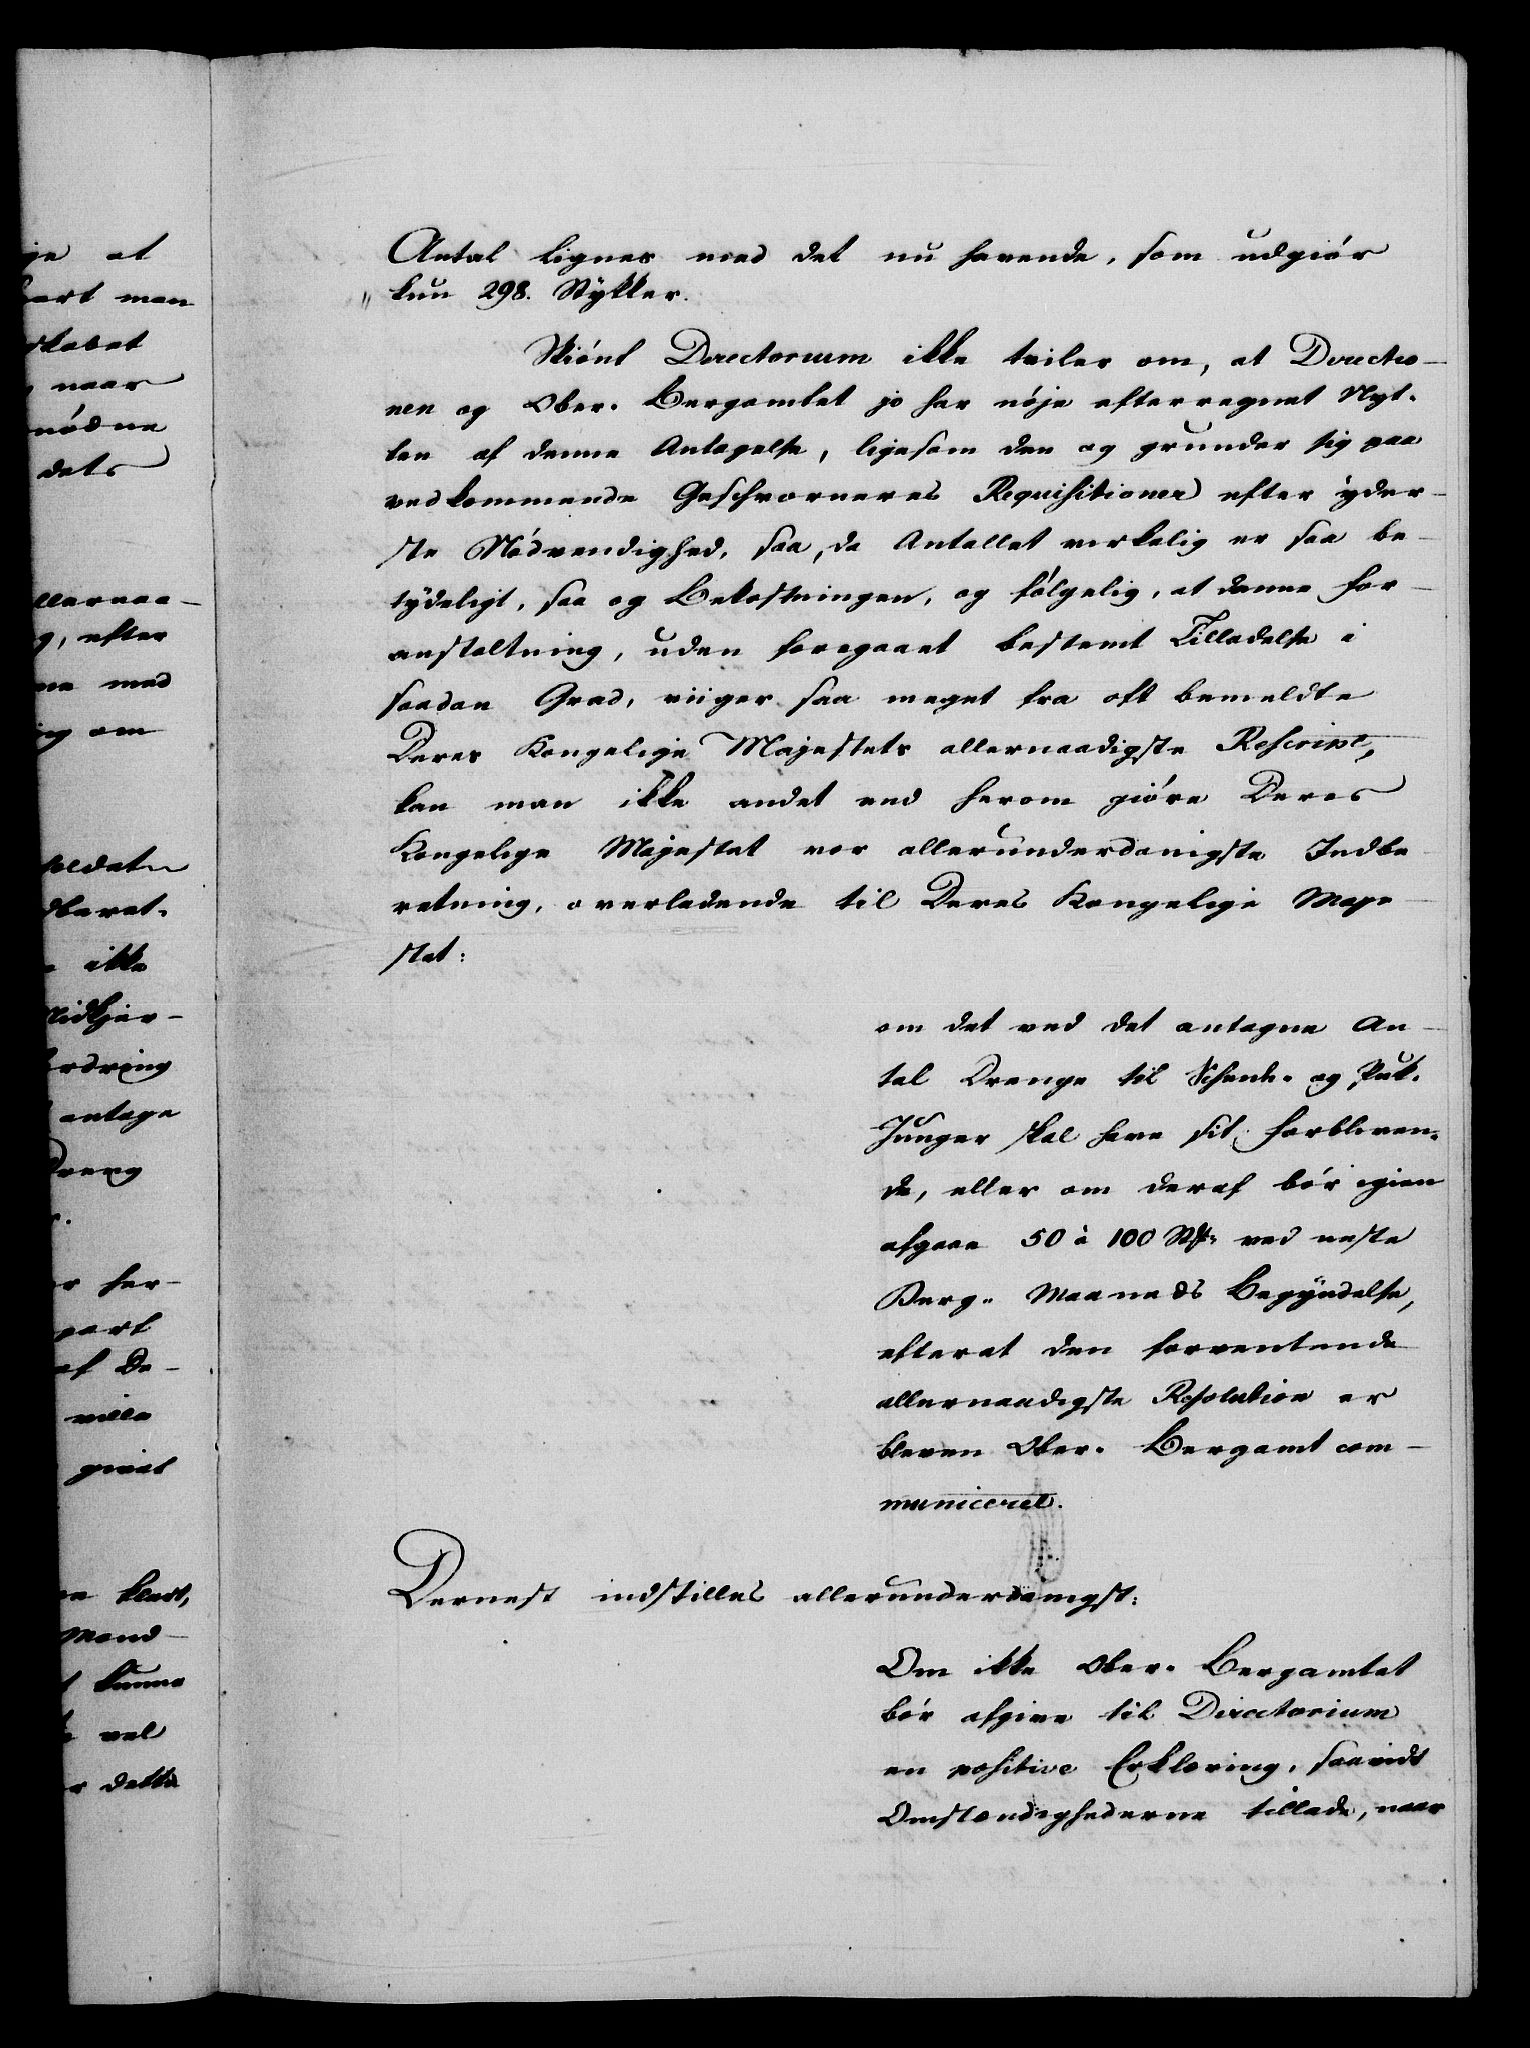 Antal lignes med det nu havende, som udgiör
kun 298. Stykker.
Skiönt Directorium ikke tviler om, at Directio-
nen og Ober-Bergamtet jo har nöje efterregnet Nyt-
ten af denne Antagelse, ligesom den og grunder sig paa
vedkommende Geschvorneres Requisitioner efter yder-
ste Nödvendighed, saa, da Antallet virkelig er saa be-
tydeligt, saa og Bekostningen, og fölgelig, at denne For-
anstaltning, uden foregaaet bestemt Tilladelse i
saadan Grad, viiger saa meget fra oft bemeldte
Deres Kongelige Majestets allernaadigste Rescript,
kan man ikke andet end herom giöre Deres
Kongelige Majestet vor allerunderdanigste Indbe-
retning, overladende til Deres Kongelige Maje-
stet:
om det ved det antagne An-
tal Drenge til Scheide- og Puk-
Junger skal have sit forbliven-
de, eller om deraf bör igien
afgaae 50 à 100 Stk: ved neste
Berg-Maaneds Begyndelse,
efterat den forventende
allernaadigste Resolution er
bleven Ober-Bergamt com-
municeret.
Dernest indstilles allerunderdanigst:
Om ikke Ober-Bergamtet
bör afgive til Directorium
en positive Erklæring, saavidt
Omstændighederne tillade, naar
je at
man
skabet
naar
nödne
dets
allernaa-
efter
med
om
ikke
antage
Dreng
her-
part
af De-
ville
givet
Mand-
kunne
vel
dette